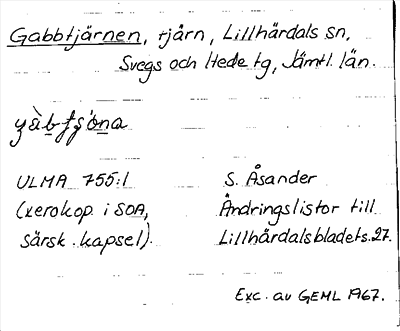 Gabbtjärnen, tjärn, Lillhärdals sn,
Svegs och Hede tg, Jämtl. län.
ULMA 755:1
(xerokop. i SOA,
särsk. kapsel).
S. Åsander
Ändringslistor till
Lillhärdalsbladets.27.
Exc. av GEML 1967.